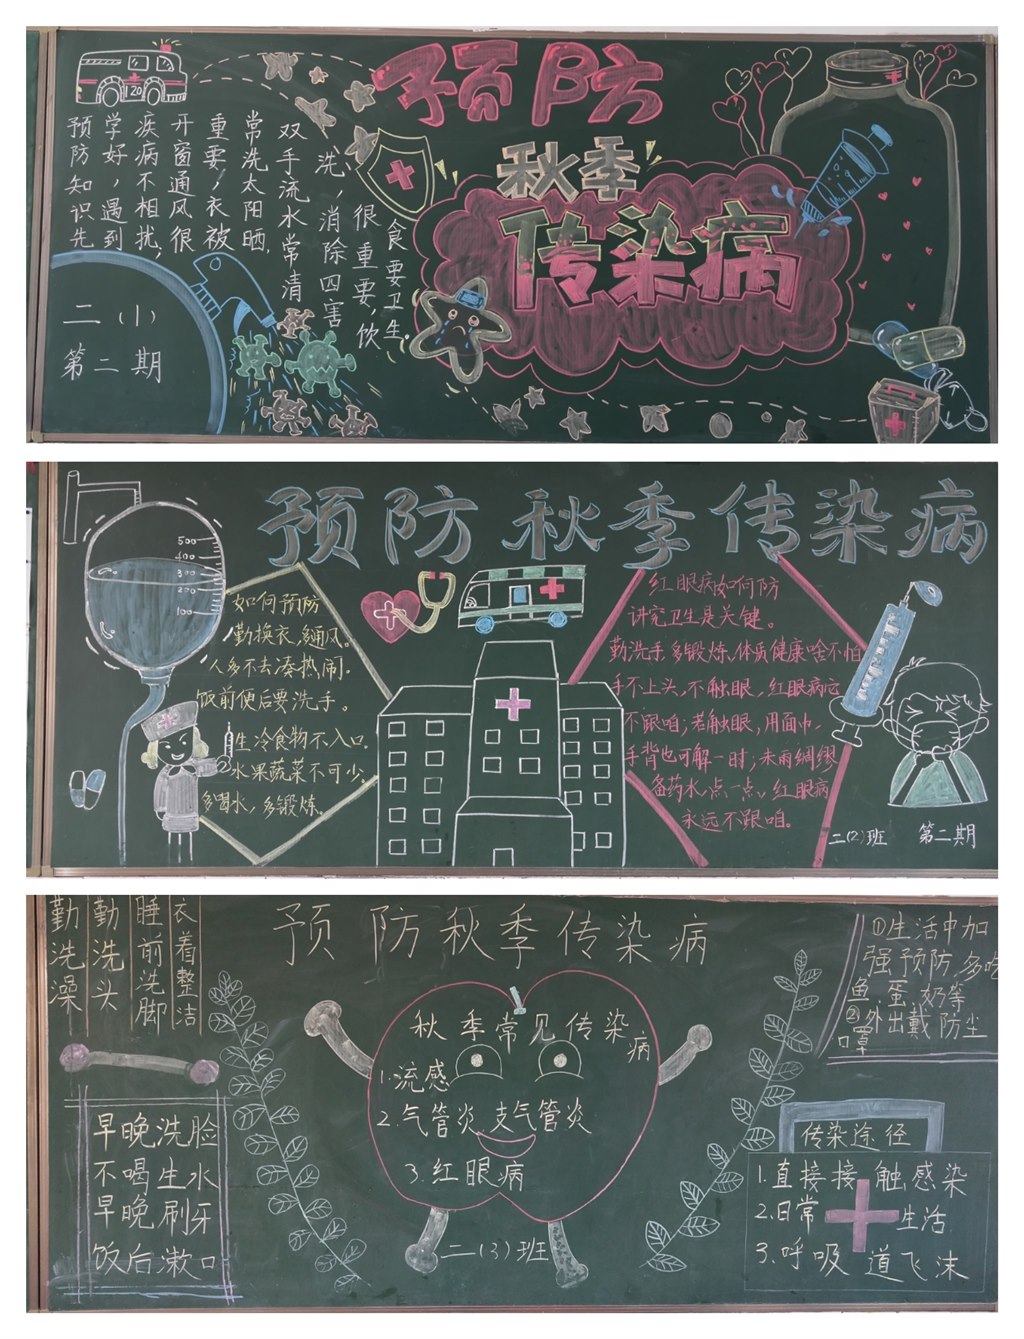 预防
秋季
传染病
120
预防知识先
学好，遇到
疾病不相扰，
开窗通风很
重要，衣被
常洗太阳晒，
双手流水常清
洗，消除四害
很重要，饮
食要卫生。
二（1）
第二期
预防秋季传染病
500
400
300
200
100
如何预防
勤换衣，通风。
人多不去凑热闹。
饭前便后要洗手。
生冷食物不入口。
水果蔬菜不可少。
多喝水，多锻炼。
红眼病如何防
讲究卫生是关键。
勤洗手，多锻炼，体质健康啥不怕
手不上头，不触眼，红眼病它
不跟咱；若触眼，用面巾，
手背也可解一时；未雨绸缪
备药水，点一点，红眼病
永远不跟咱。
二（2）班 第二期
预防秋季传染病
勤洗澡
勤洗头
睡前洗脚
衣着整洁
早晚洗脸
不喝生水
早晚刷牙
饭后漱口
秋季常见传染病
1.流感
2.气管炎、支气管炎
3.红眼病
二（3）班
①生活中加
强预防，多吃
鱼、蛋、奶等
②外出戴防尘
口罩
传染途径
1.直接接触感染
2.日常生活
3.呼吸道飞沫